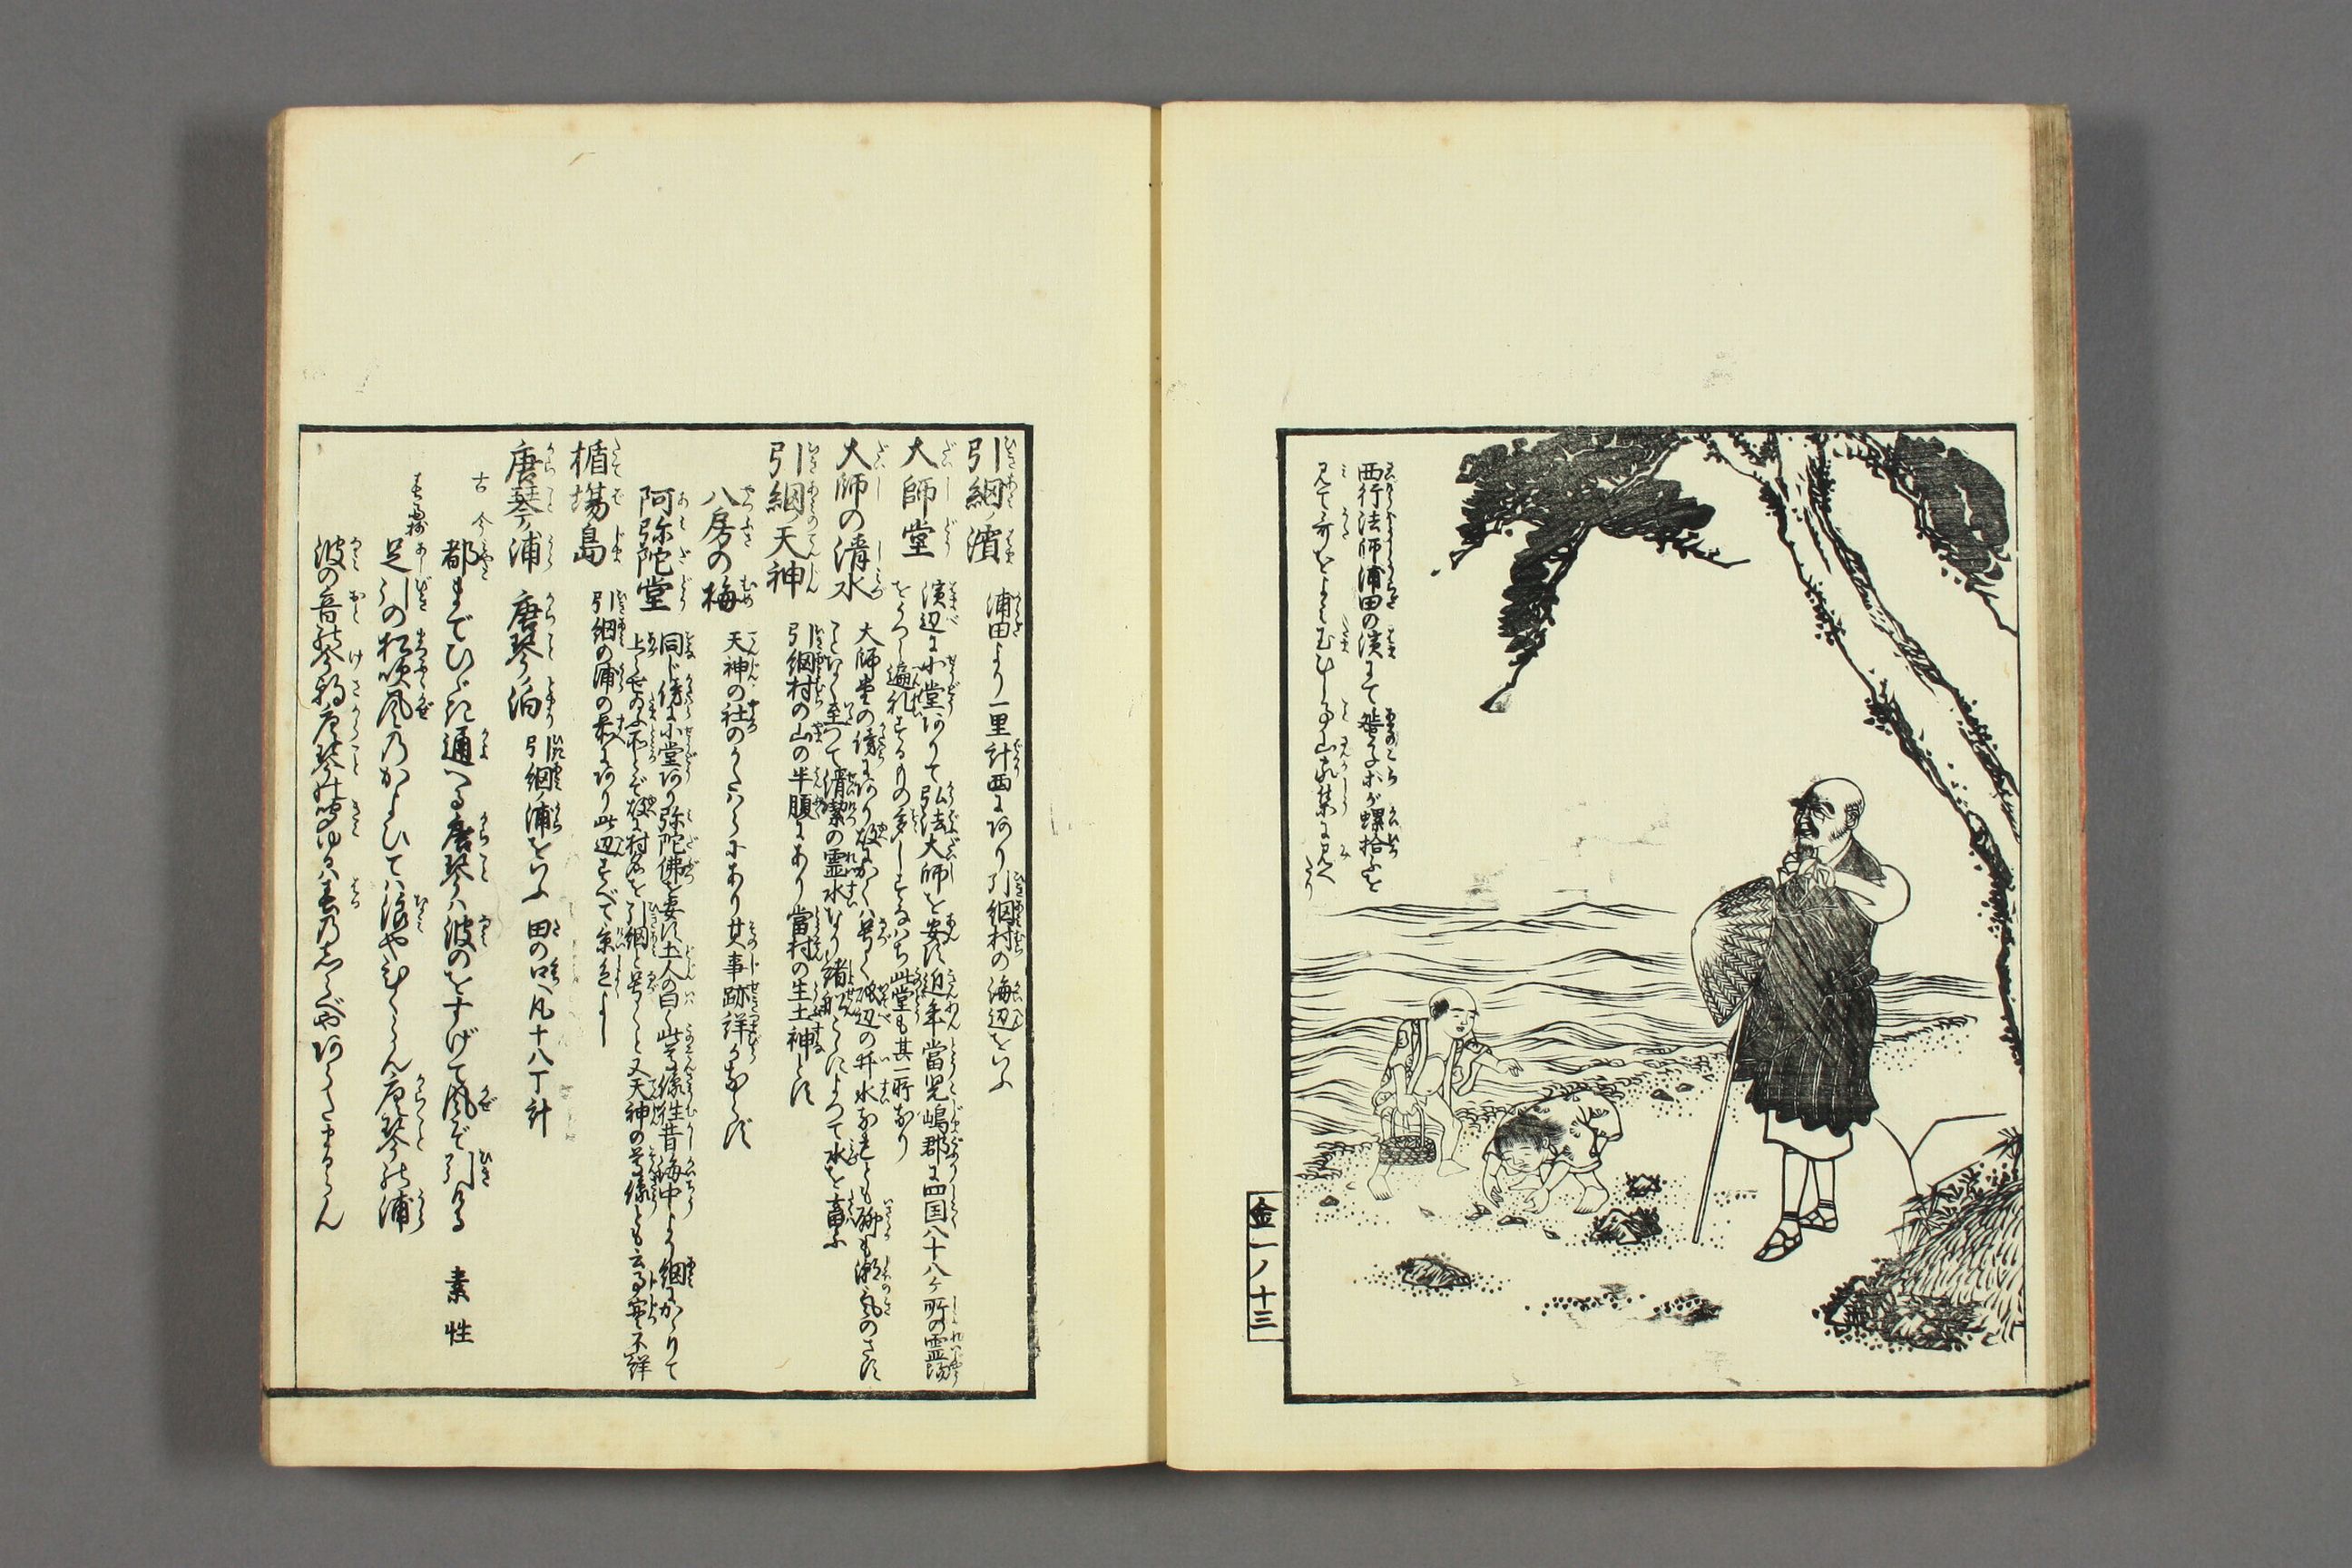 西行法師浦田の濱にて蜑の子等が螺拾ふを
見て哥をよむむしる事山家集に見へ
たり
金一ノ十三
引網ノ濱 浦田より一里計西にあり引網村の海辺をいふ
大師堂 濱辺に小堂ありて弘法大師を安ず近年當児嶋郡に四国八十八ケ所の霊場
をうつし遍礼するもの多しすなハち此堂も其一所なり
大師の清水 大師堂の傍にあり 磯辺の井水なれとも 潮気のさす
ことなく至つて清潔の霊水なり諸船これによつて水を畜ふ
引網ノ天神 引網村の山の半腹にあり當村の生土神とす
八房の梅 天神の社のかたハらにあり其事跡詳ならず
阿弥陀堂 同じ傍に小堂あり弥陀佛を安ず土人の曰く此尊像往昔海中より網にかゝりて
上らせ給ふ所とぞ故に村名を引網と号くと又天神の尊像とも云る実不詳
楯場島 引網の浦の表にあり此辺すべて景色よし
唐琴ノ浦 唐琴ノ泊 引網ノ浦をいふ 田の口へ凡十八丁計
古今 都までひゞき通へる唐琴ハ波のをすげて風ぞ引ける 素性
足引の松吹風のかよひてハ浪やむらん唐琴の浦
波の音の今朝唐琴に聞ゆるハ春のしらべやあらたまるらん